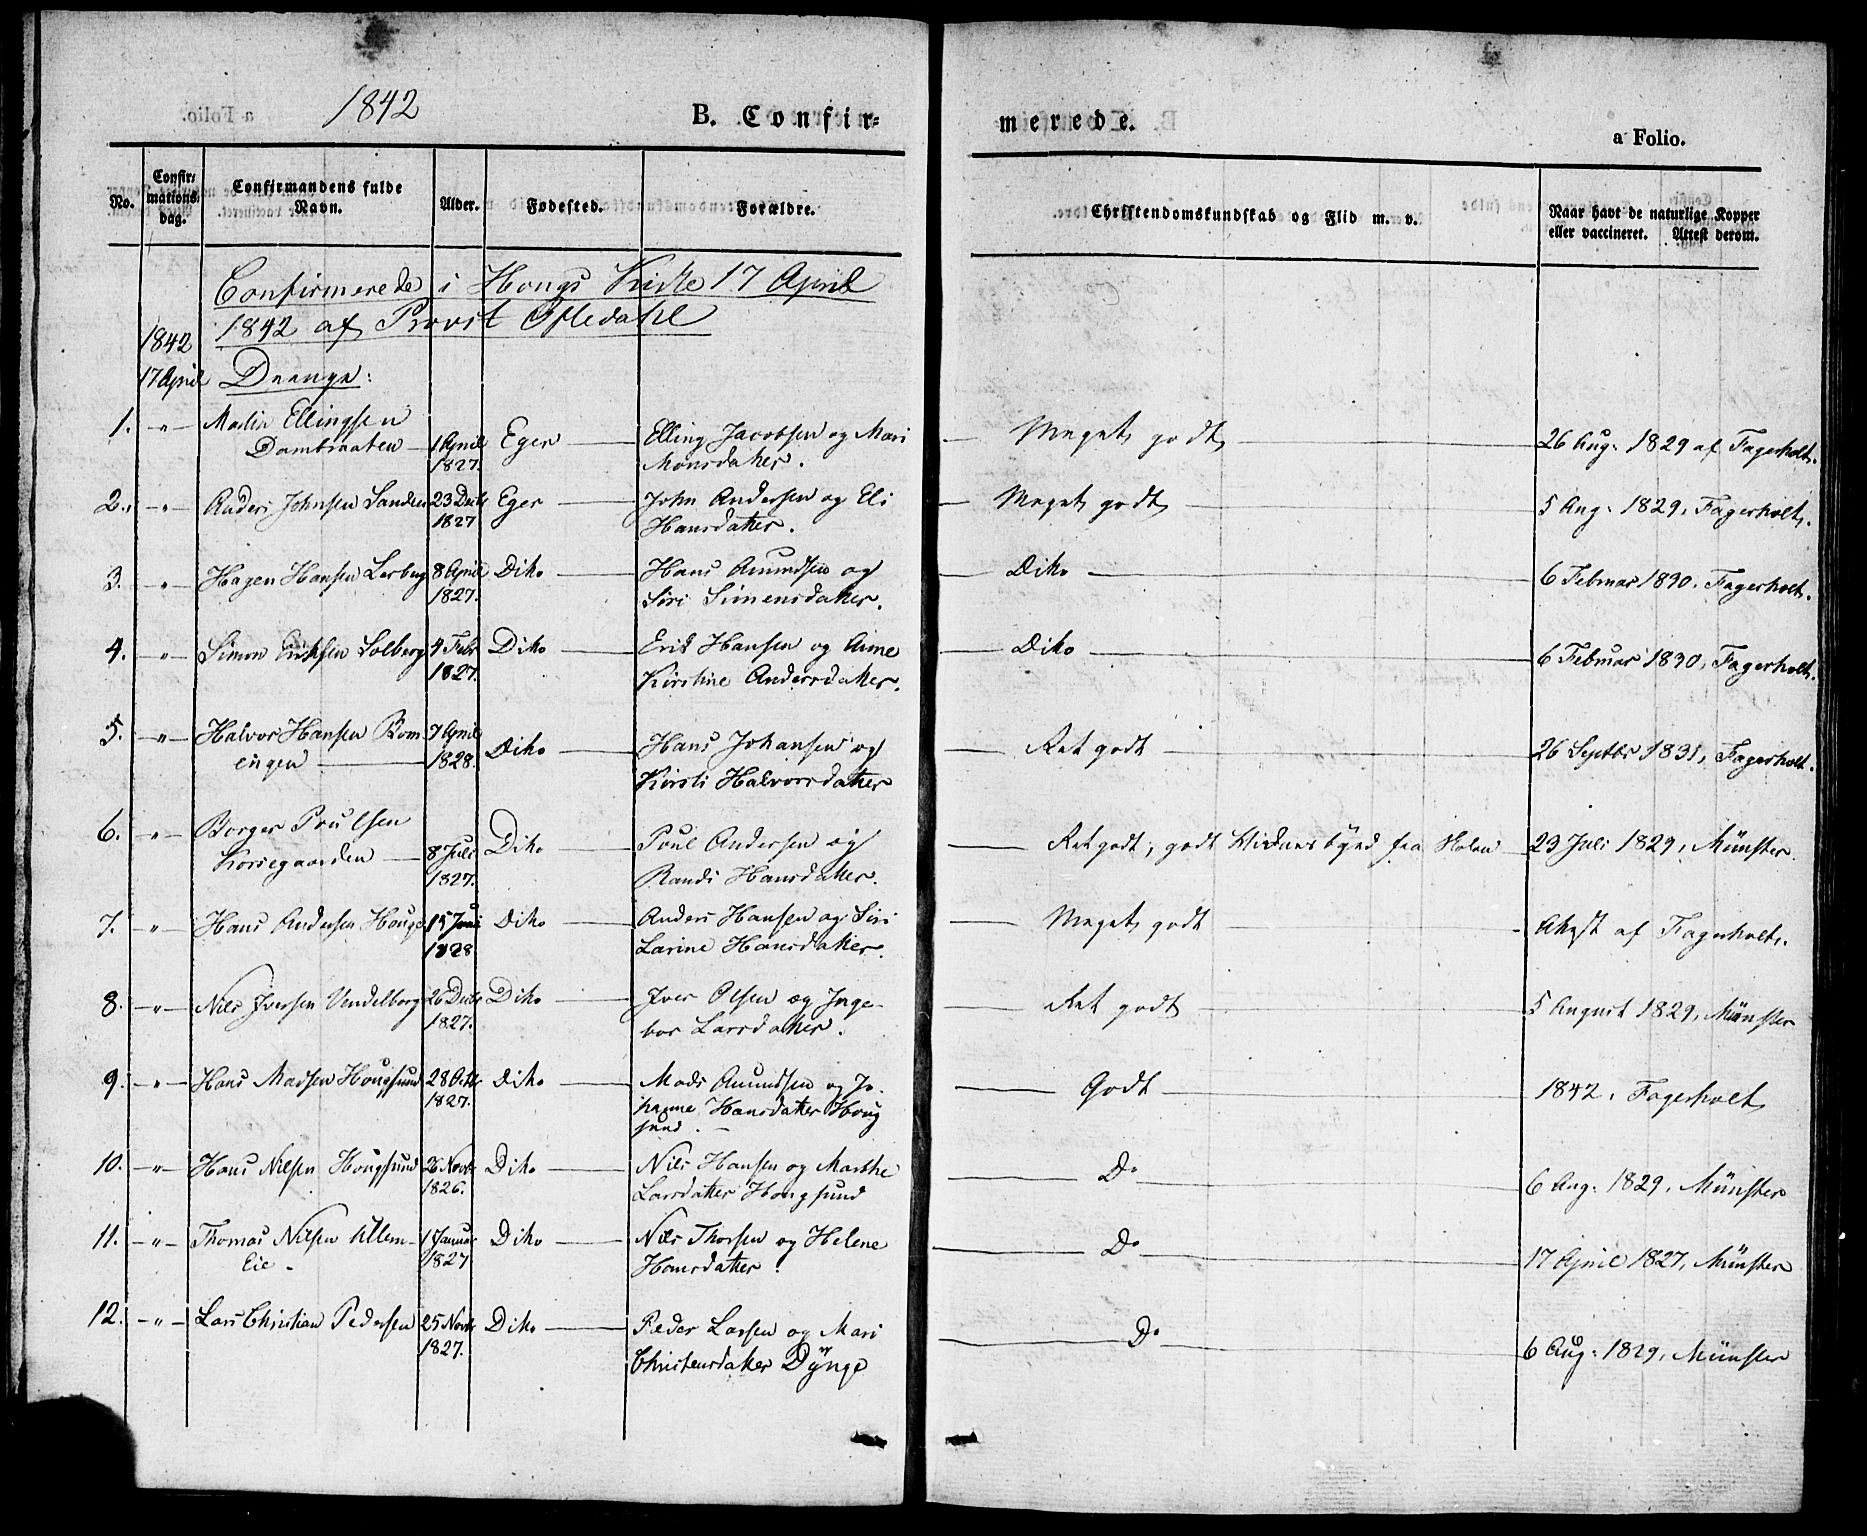 1842
B. Confir=
merede.
a Folio.
No.
Confir=
mations=
dag.
Confirmandens fulde
Navn.
Alder.
Fødested.
Forældre.
Christendomskundskab og Flid m. v.
Naar havt de naturlige Kopper
eller vaccineret. Attest derom.
Confirmerede i Hougs Kirke 17 April
1842 af Provst
1842
17 April
Drenge:
1. " Ellingsen
Dambraaten 1 April 1827. Eger Elling Jacobsen og Mari
Monsdatter. Meget godt 26 Aug: 1829 af Fagerholt.
2. " Anders Johnsen Sanden 23 Decbr 1827 Eger John Andersen og Eli
Hansdatter. Meget godt 5 Aug: 1829, Fagerholt.
3. " Hagen Hansen Lerberg 8 April 1827. Dito Hans Amundsen og
Siri Simensdatter. Dito 6 Februar 1830, Fagerholt.
4. " Simon Eriksen Solberg 4 Febr 1827. Dito Erik Hansen og Anne
Kirstine Andersdatter. Dito 6 Februar 1830, Fagerholt.
5. " Halvor Hansen Rom-
engen 7 April 1828. Dito Hans Johansen og
Kirsti Halvorsdatter Ret godt 26 Septbr 1831, Fagerholt.
6. " Borger Poulsen
Korsegaarden 8 Juli 1827. Dito Poul Andersen og
Randi Hansdatter. Ret godt; godt Vidnesbyrd fra Skolen 23 Juli 1829, Münster.
7. " Hans Andersen Houge 15 Juni 1828 Dito Anders Hansen og Siri
Larine Hansdatter. Meget godt Attest af Fagerholt.
8. " Nils Iversen Vendelborg 26 Decbr 1827. Dito Iver Olsen og Inge-
bor Larsdatter. Ret godt 5 August 1829, Münster
9. " Hans Madsen Hougsund 28 Octbr 1827. Dito Mads Amundsen og Jo-
hanne Hansdatter Houg
sund. Godt 1842, Fagerholt
10. " Hans Nilsen Hougsund 26 Novbr 1826. Dito Nils Hansen og Marthe
Larsdatter Hougsund Do 6 Aug: 1829, Münster
11. " Thomas Nilsen Ullern-
Eie. 1 Januar 1827 Dito Nils Thorsen og Helene
Hansdatter. Do 17 April 1827, Münster
12. " Lars Christian Pedersen 25 Novbr 1827. Dito Peder Larsen og Mari
Christensdatter Dÿnge Do 6 Aug: 1829, Münster